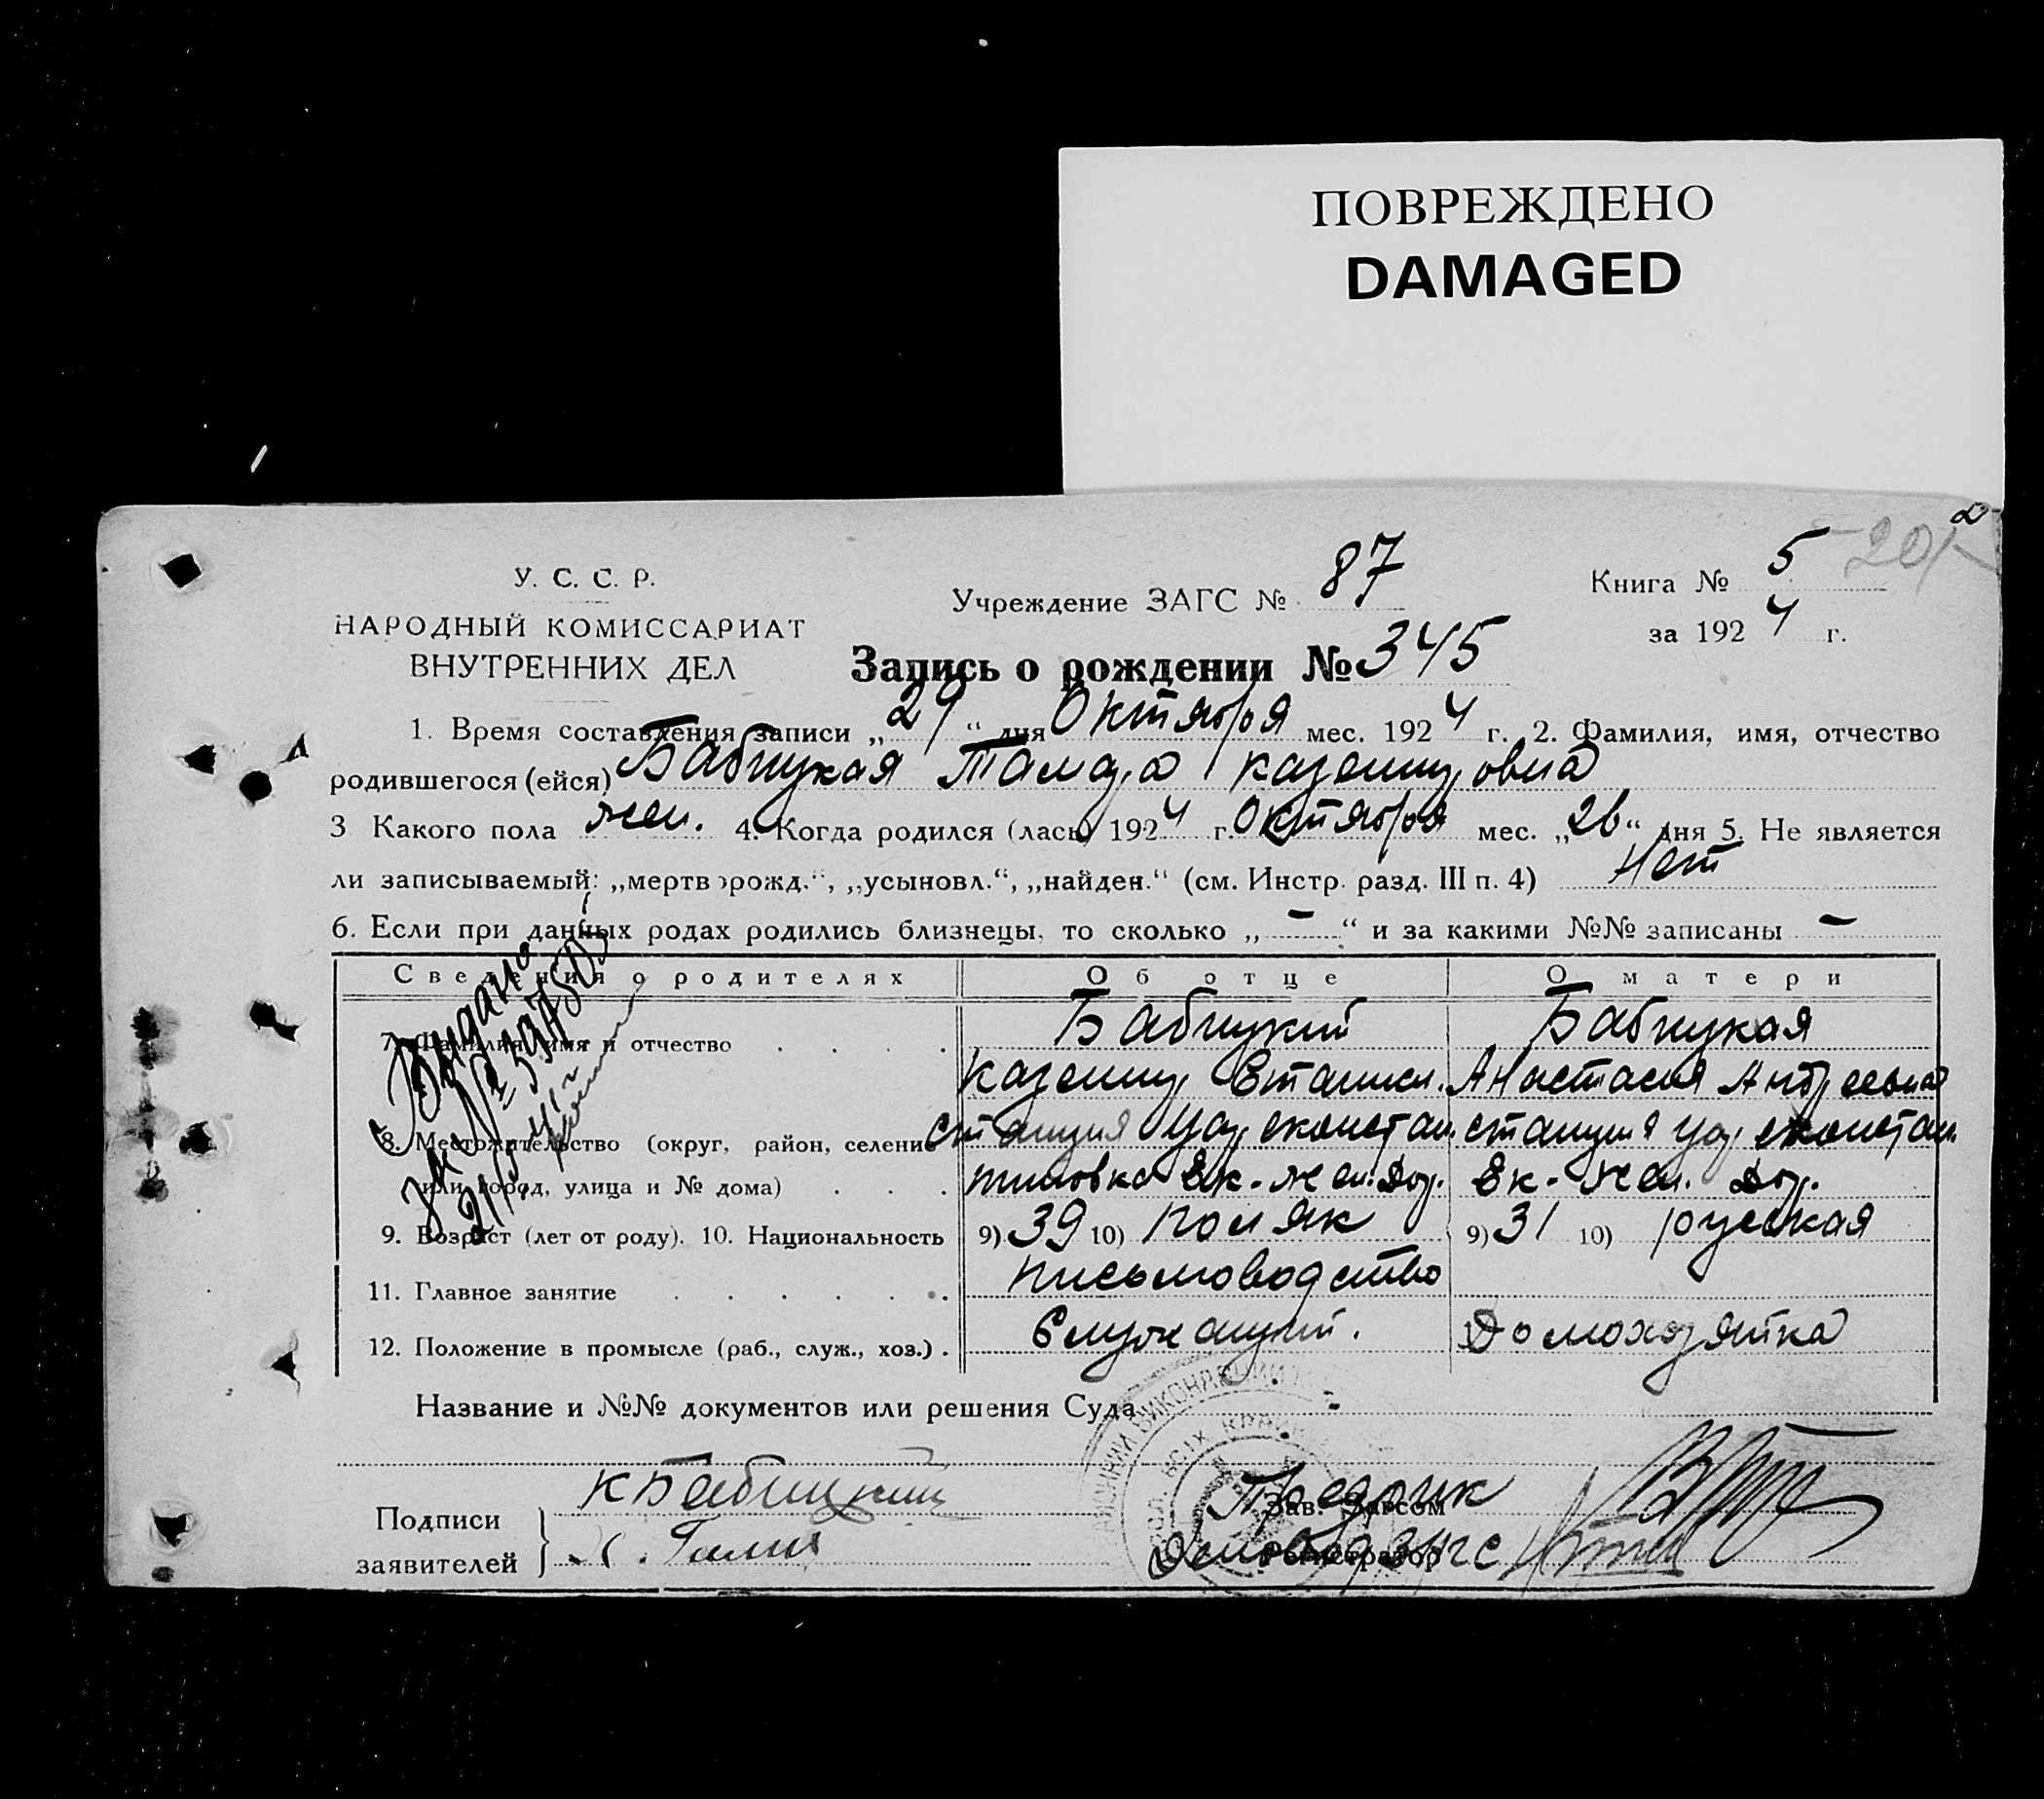 ПОВРЕЖДЕНО
DAMAGED
2
201
У. С. С. Р.
НАРОДНЫЙ КОМИССАРИАТ
ВНУТРЕННИХ ДЕЛ
Учреждение ЗАГС № 87
Книга № 5
за 1924 г.
Запись о рождении № 345
1. Время составления записи „29“ дня Октября мес. 1924 г. 2. Фамилия, имя, отчество
родившегося (ейся) Бабицкая Тамара Казимировна
3 Какого пола жен. 4. Когда родился (лась) 1924 г. Октября мес. „26“ дня 5. Не является
ли записываемый: „мертворожд.“, „усыновл.“, „найден.“ (см. Инстр. разд. III п. 4) Нет
6. Если при данных родах родились близнецы, то сколько „—“ и за какими №№ записаны —
Сведения о родителях Об отце О матери
7. Фамилия, имя и отчество . . . . Бабицкий Бабицкая
Казимир Станисл. Анастасия Андреевна
8. Местожительство (округ, район, селение станция станция
или город, улица и № дома) . . . Ек. жел. дор. Ек. жел. дор.
9. Возраст (лет от роду). 10. Национальность 9) 39 10) поляк 9) 31 10) русская
11. Главное занятие . . . . . . письмоводство
12. Положение в промысле (раб., служ., хоз.) . Служащий. Домохозяйка
Выдано
за №
Название и №№ документов или решения Суда -
Подписи
заявителей
К Бабицкий
Зав. Загсом
Регистратор